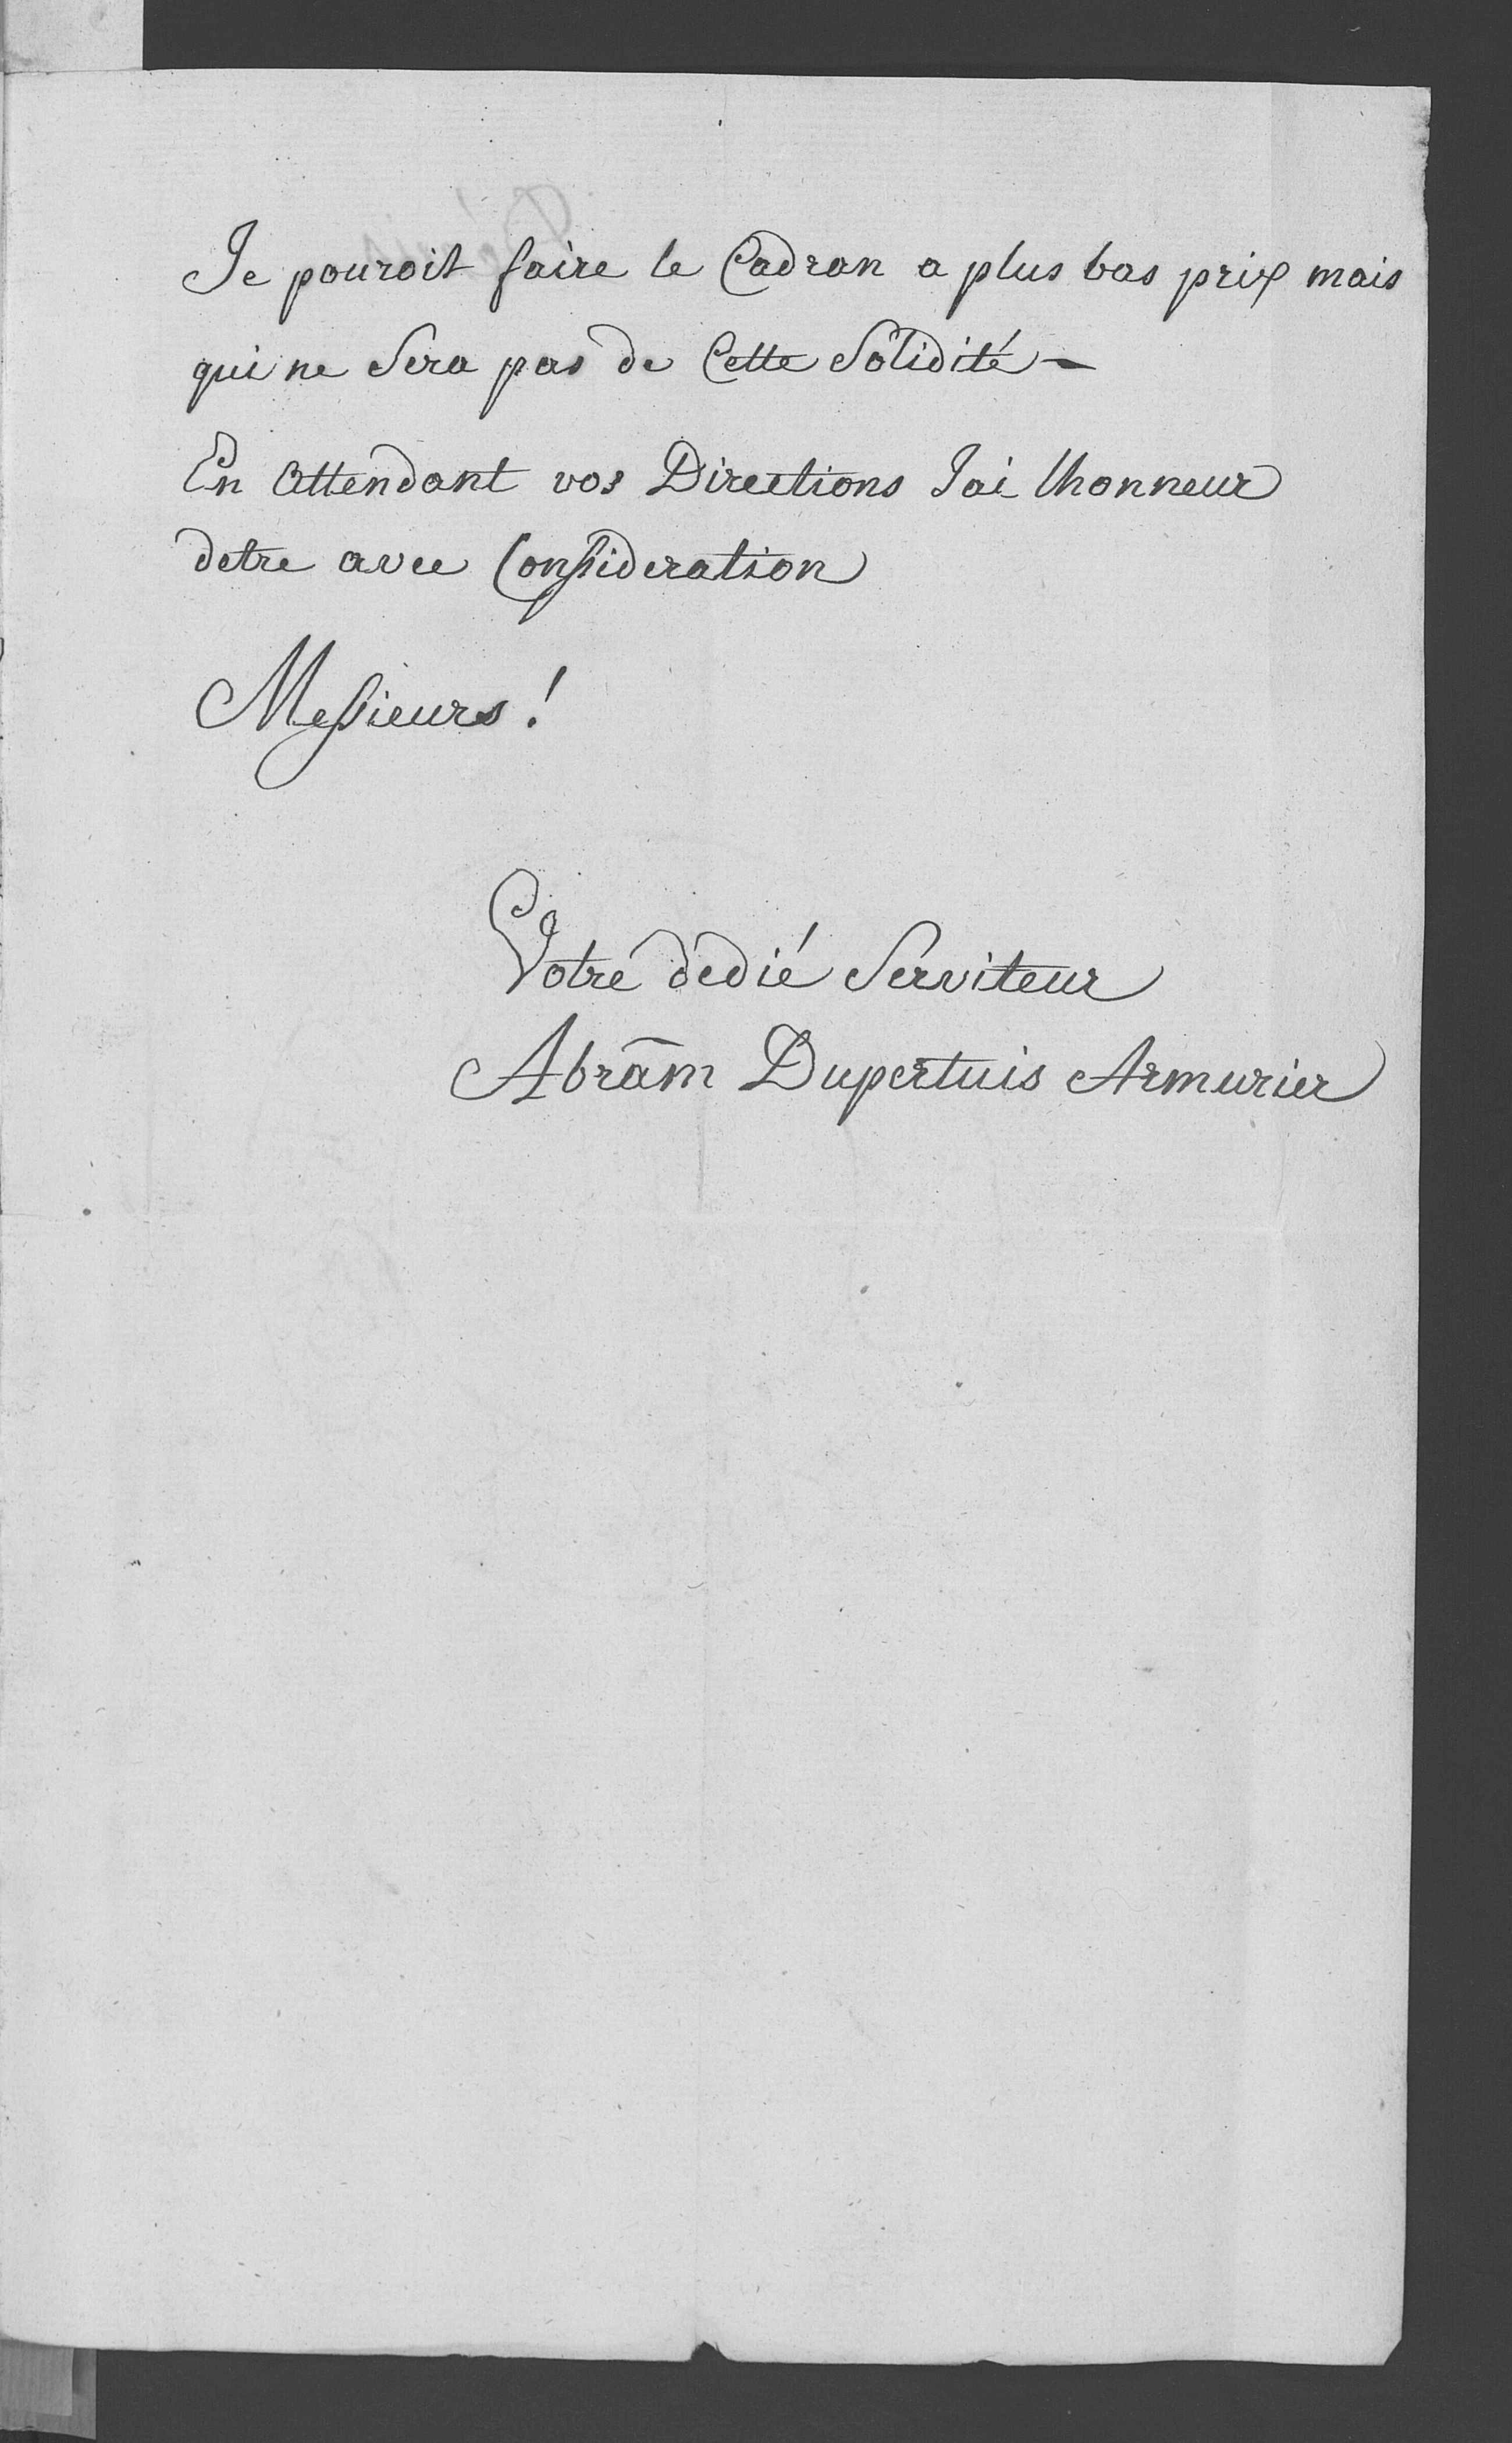 Je pouroit faire le Cadran a plus bas prix mais
qui ne Sera pas de Cette Solidité –
En Attendant vos Directions Jai lhonneur
detre avec Consideration
Messieurs !
Votre dedié Serviteur
Abram Dupertuis Armurier